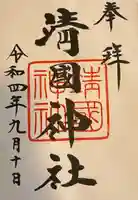 奉拝
清國神社
清國神社
令和四年九月十日